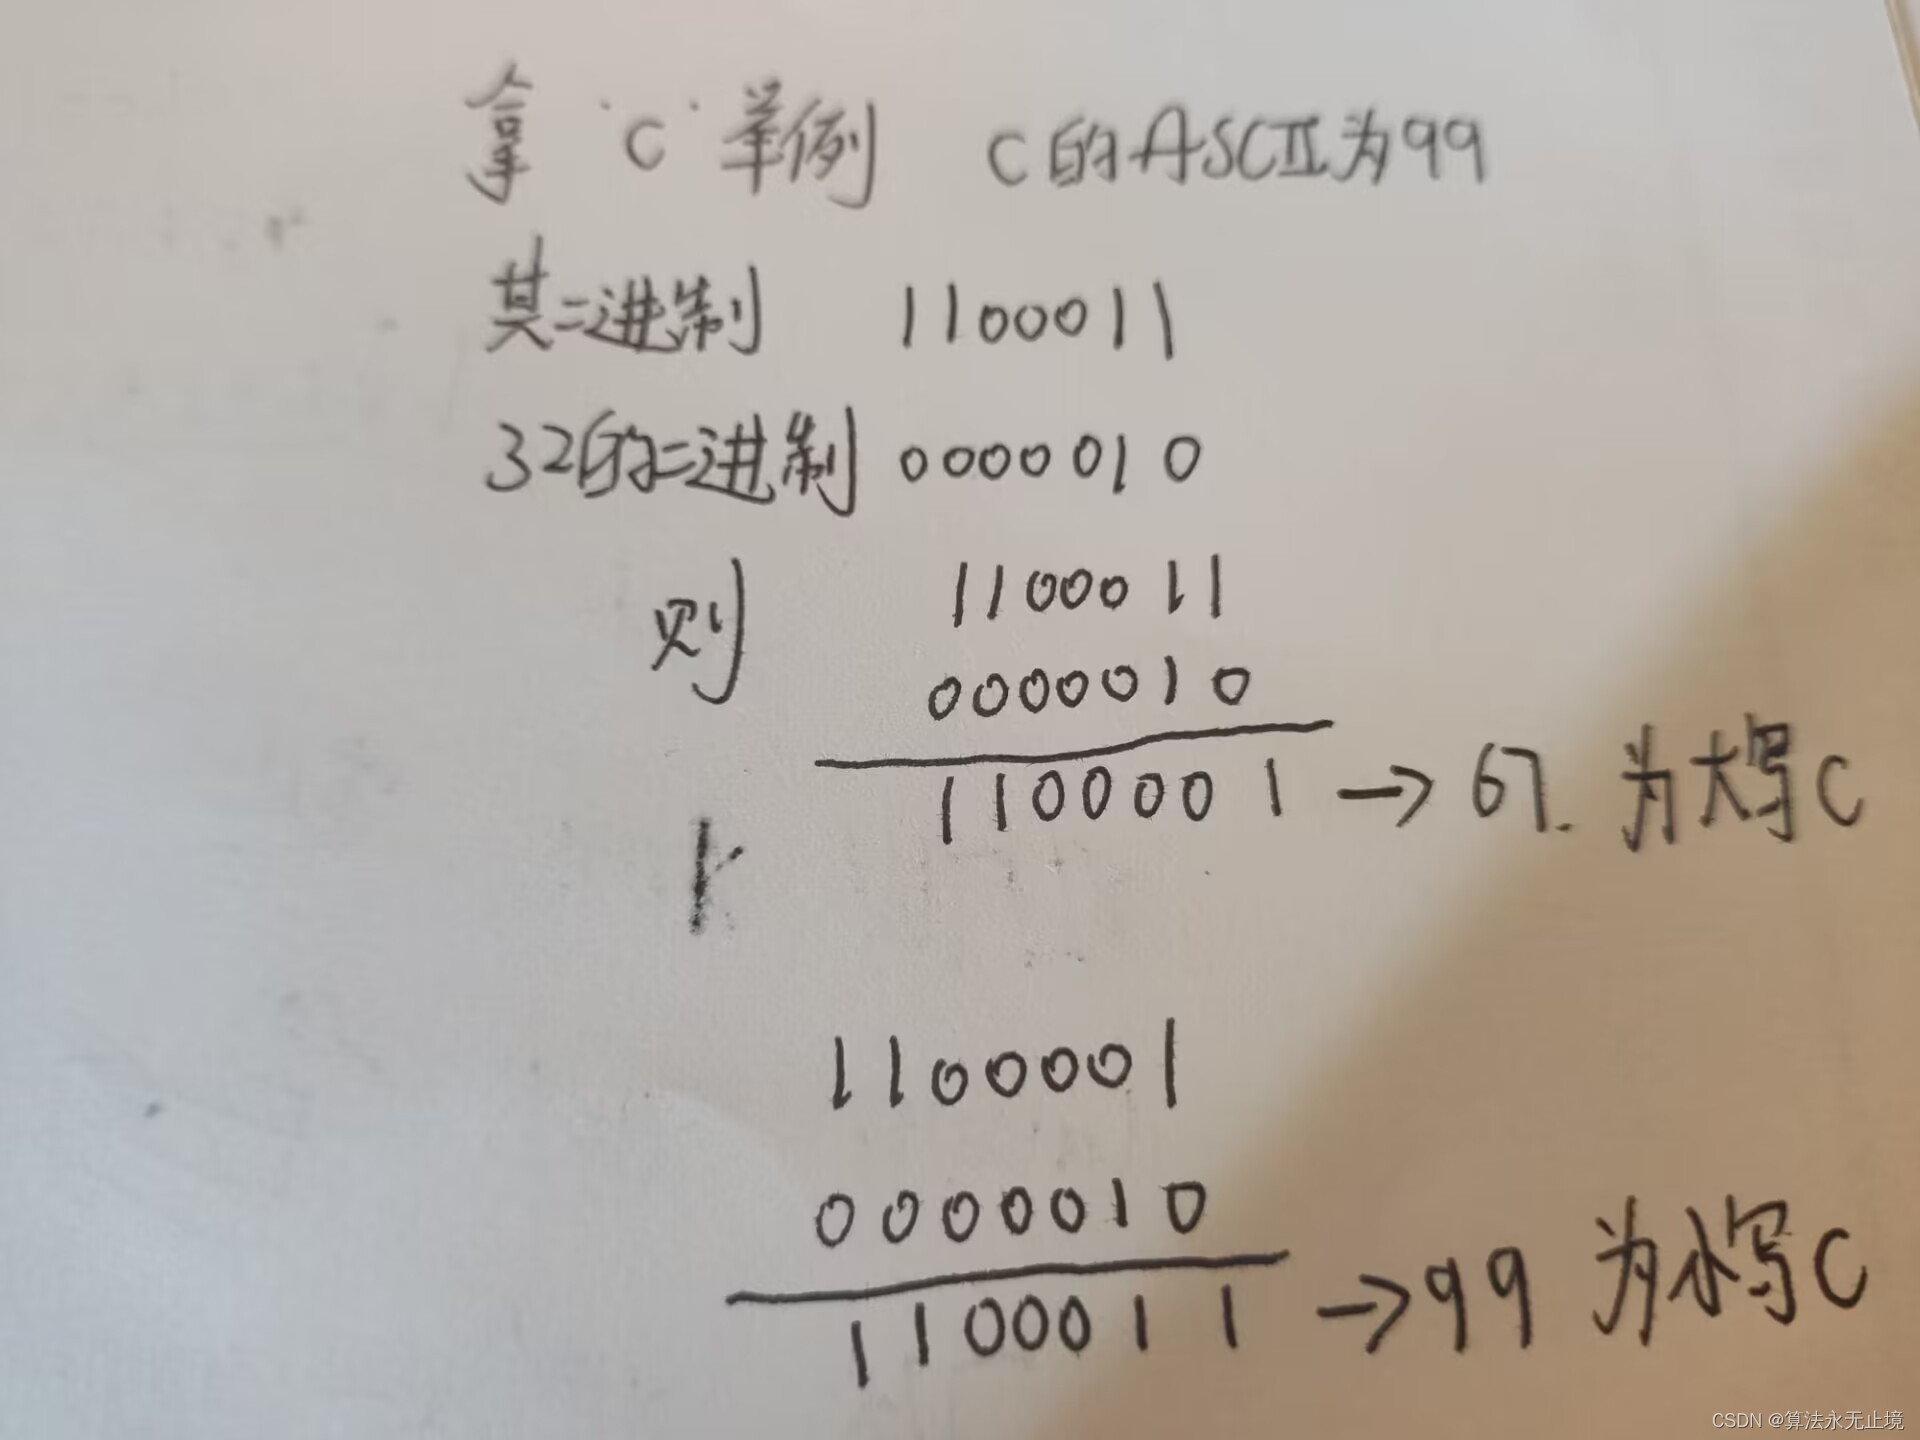 拿'c'举例 c的ASCII为99
其二进制 1100011
32的二进制 0000010
则 1100011
0000010
1100001 → 67. 为大写C
1100001
0000010
1100011 → 99 为小写C
CSDN @算法永无止境